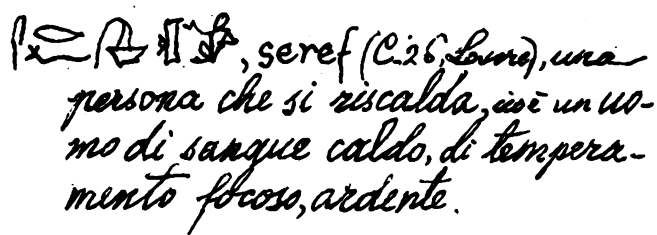 , seref (C. 26, Louvre), una
persona che si riscalda, cioè un uo-
mo di sangue caldo, di tempera-
mento focoso, ardente.